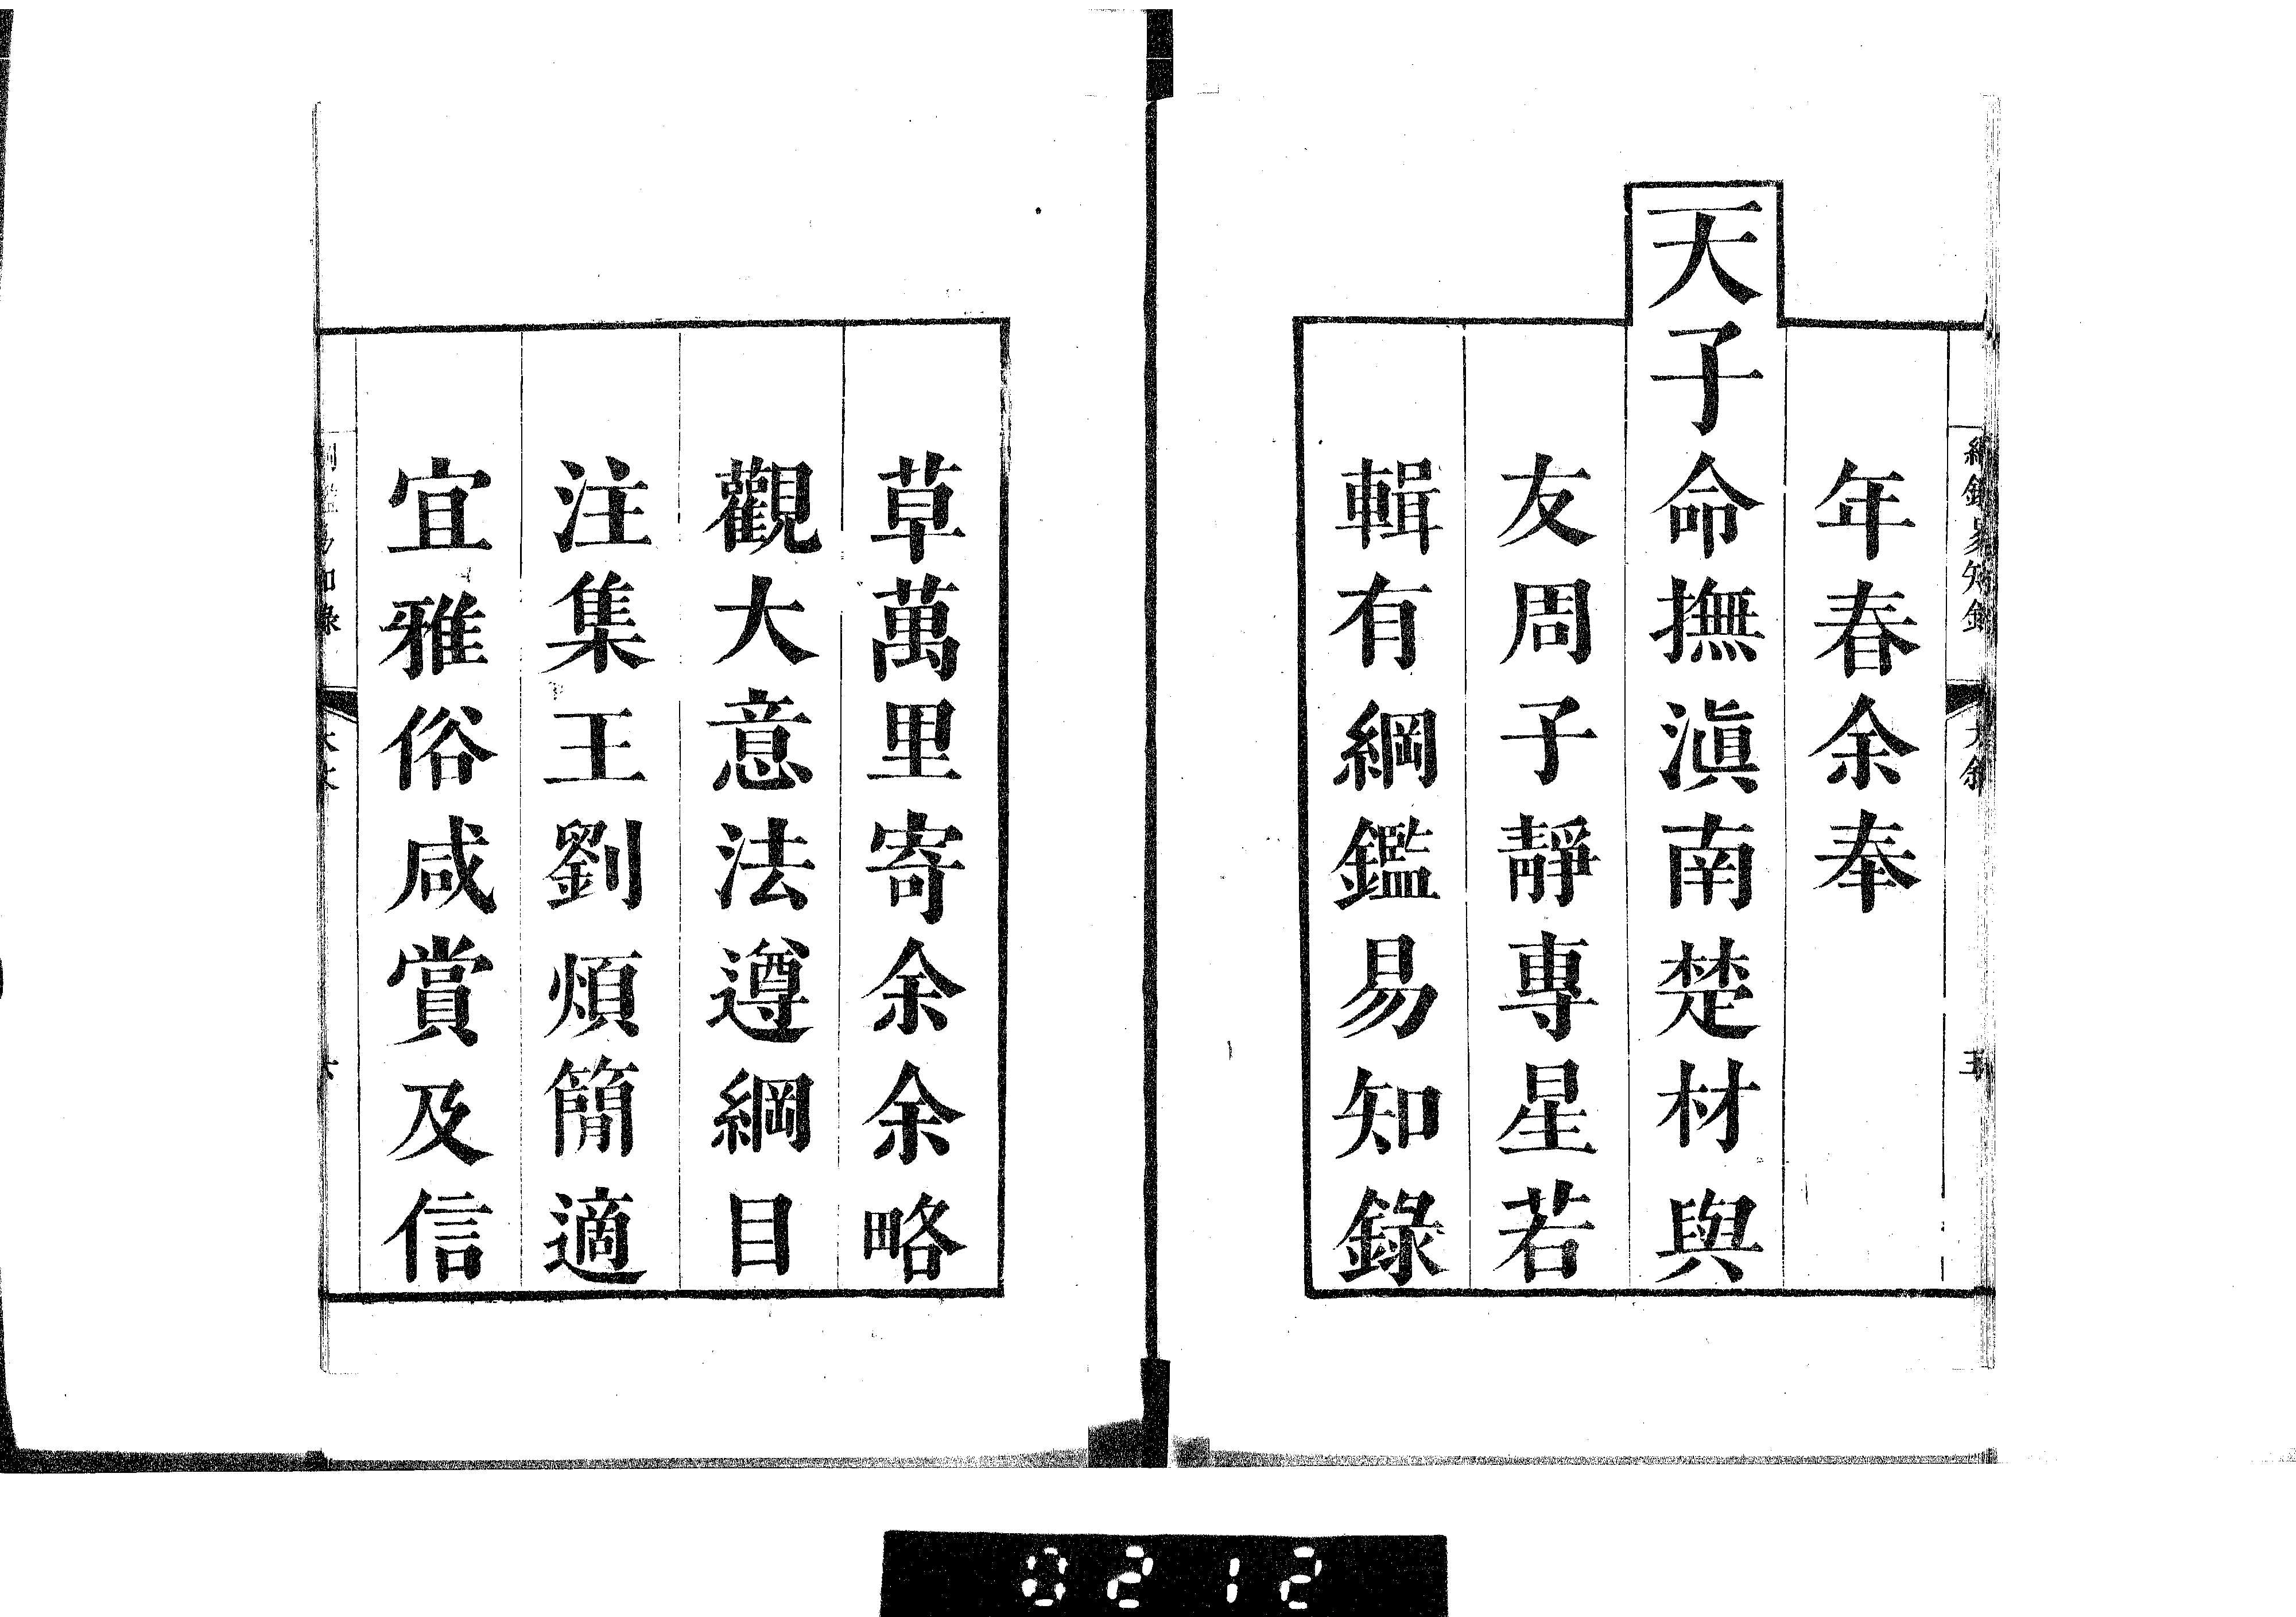 年春余奉
天子命撫滇南楚材與
友周子靜專星若
輯有綱鑑易知錄
草萬里寄余余略
觀大意法遵綱目
注集王劉煩簡適
宜雅俗咸賞及信
0212